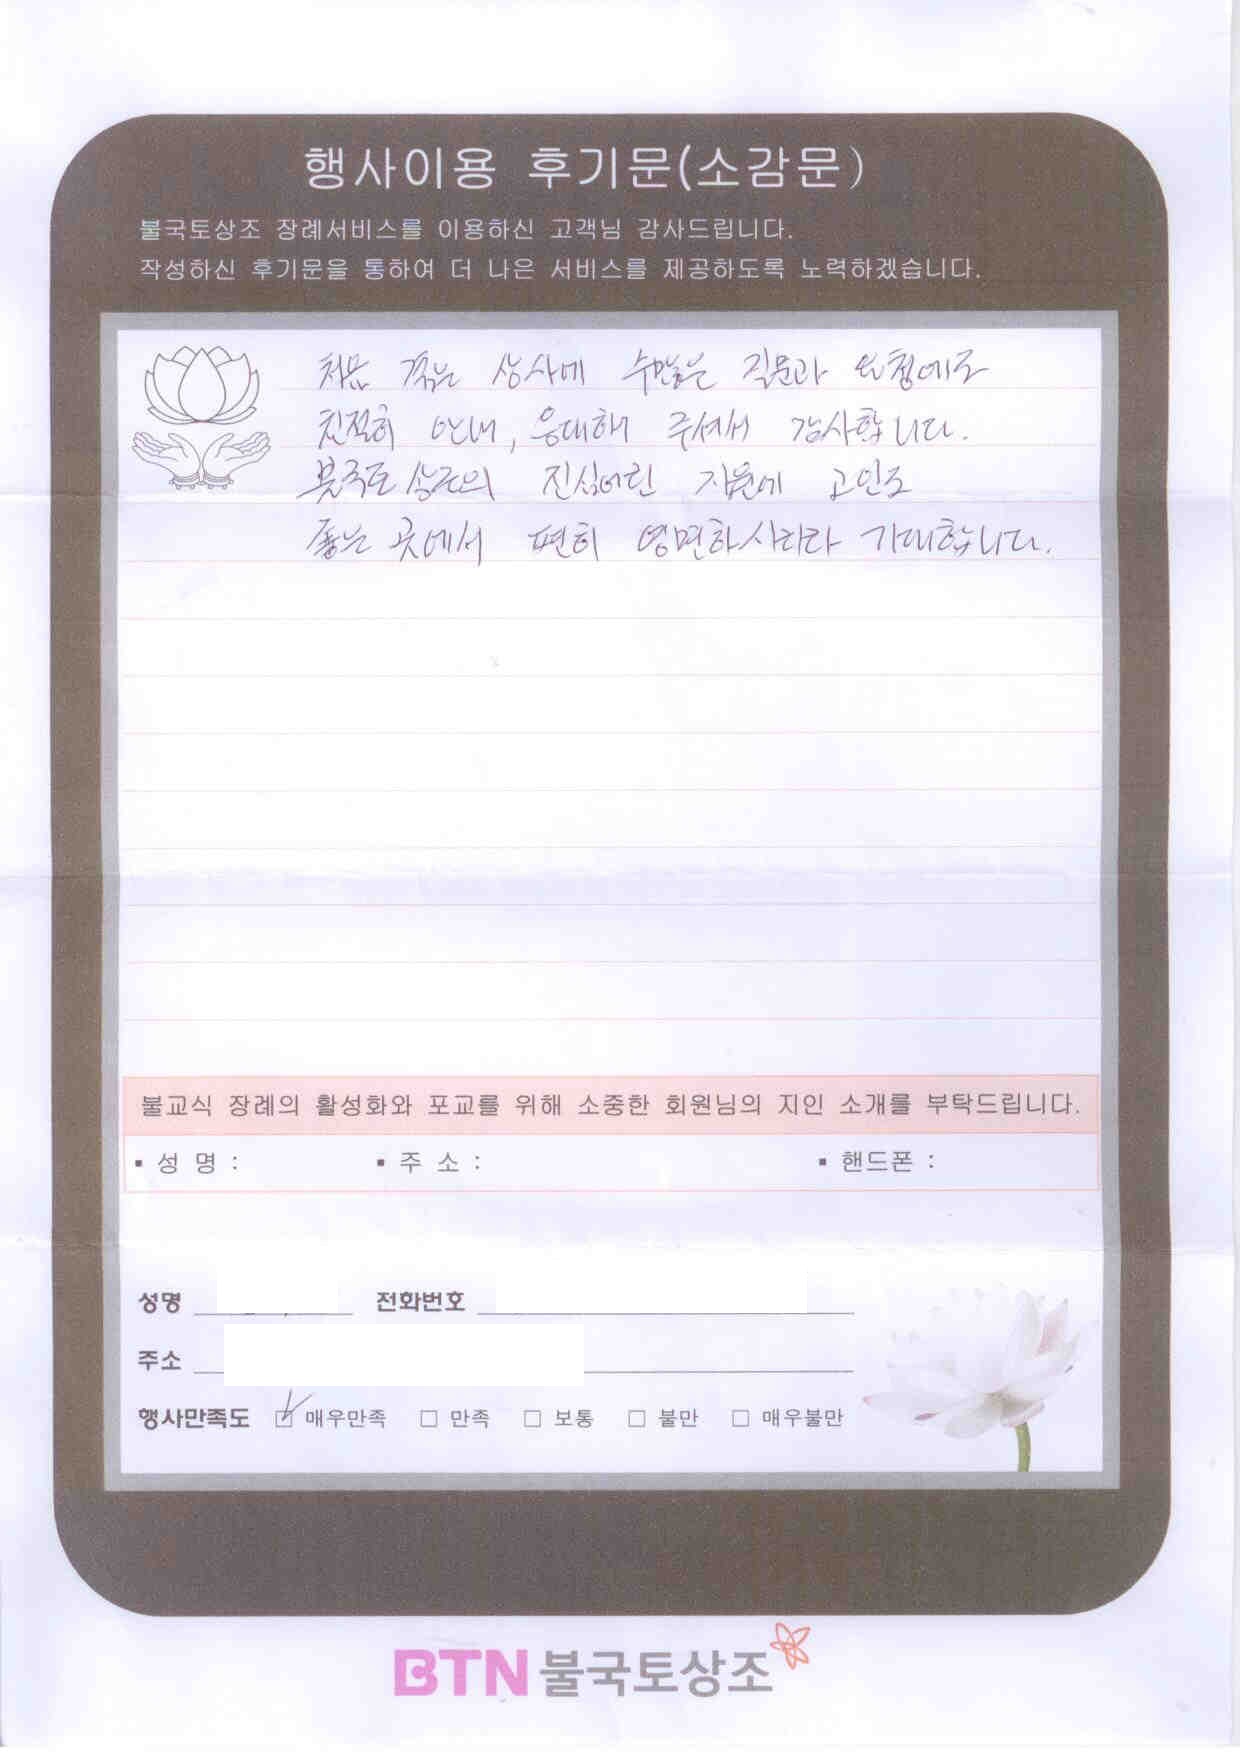 행사이용 후기문(소감문)
불국토상조 장례서비스를 이용하신 고객님 감사드립니다.
작성하신 후기문을 통하여 더 나은 서비스를 제공하도록 노력하겠습니다.
처음 겪는 상사에 수많은 질문과 요청에도
친절히 안내, 응대해 주셔서 감사합니다.
불국토상조의 진심어린 지원에 고인도
좋은 곳에서 편히 영면하시리라 기대합니다.
불교식 장례의 활성화와 포교를 위해 소중한 회원님의 지인 소개를 부탁드립니다.
▪ 성 명 : ▪ 주 소 : ▪ 핸드폰 :
성명 전화번호
주소
행사만족도 ☑ 매우만족 □ 만족 □ 보통 □ 불만 □ 매우불만
BTN 불국토상조